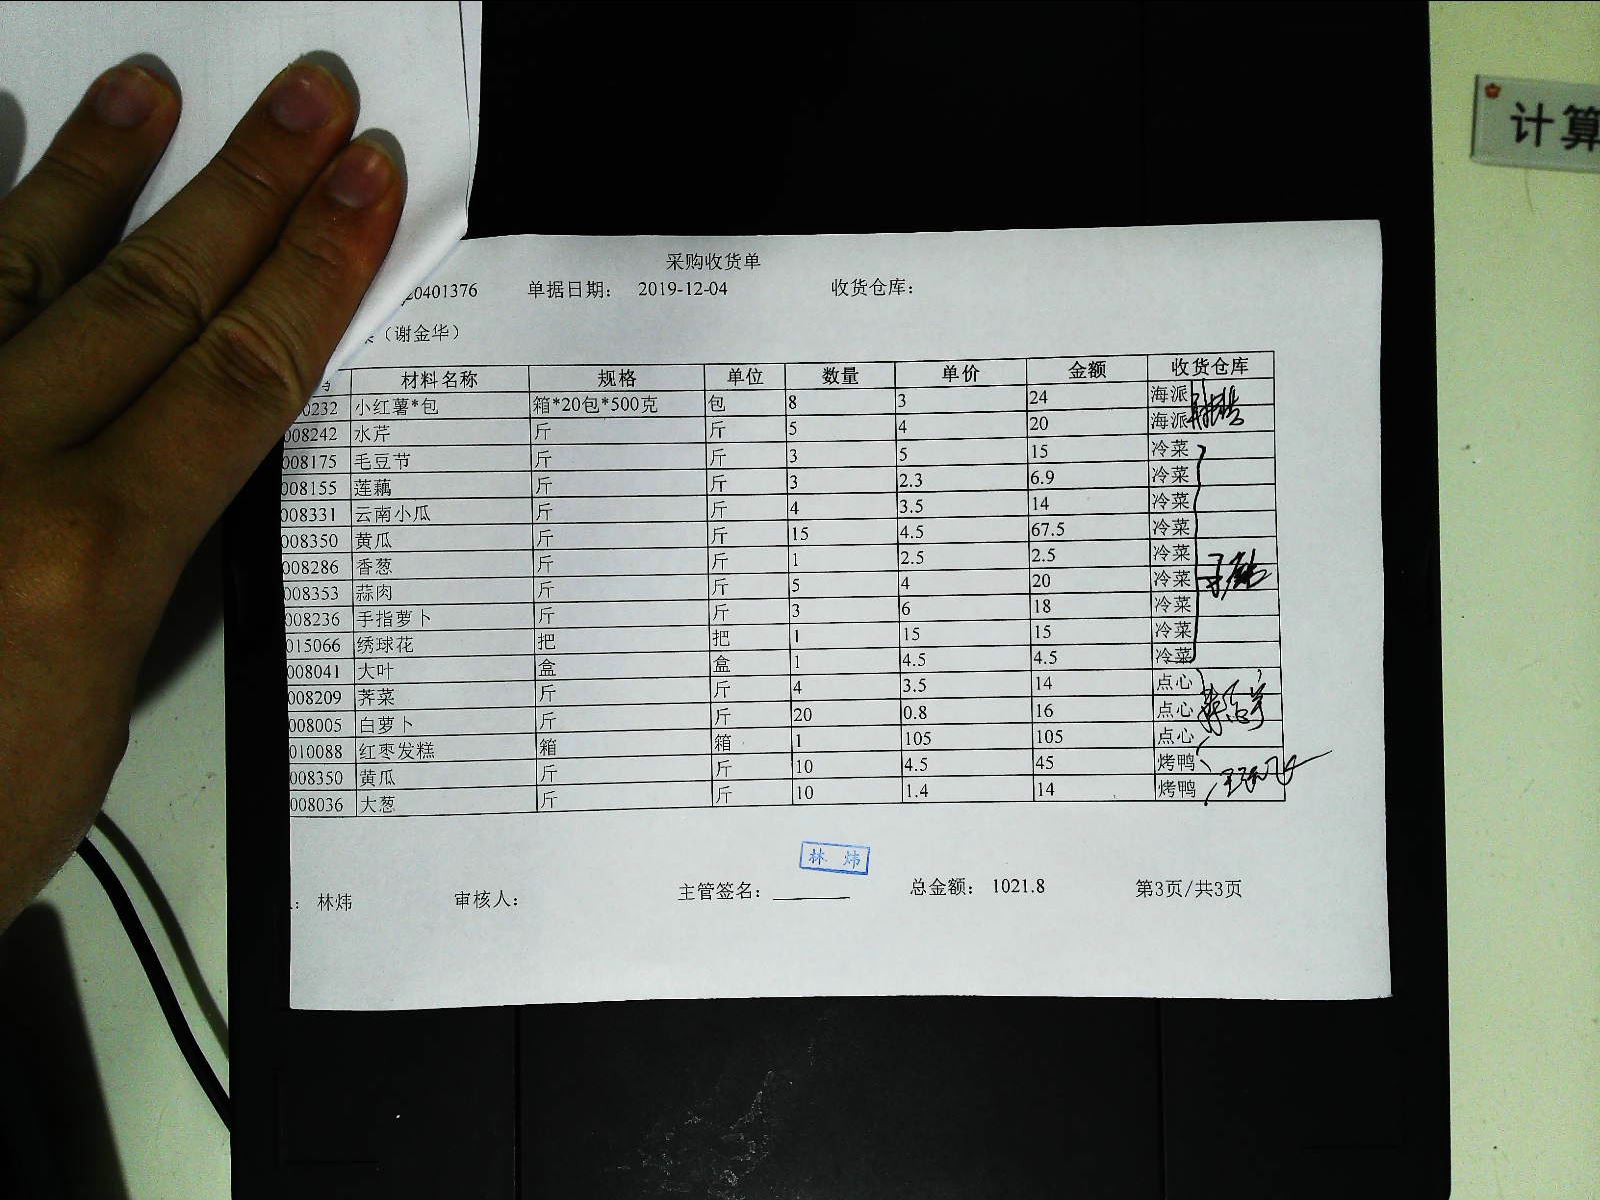 计算
采购收货单
20401376 单据日期： 2019-12-04 收货仓库：
（谢金华）
材料名称 规格 单位 数量 单价 金额 收货仓库
0232 小红薯*包 箱*20包*500克 包 8 3 24 海派
008242 水芹 斤 斤 5 4 20 海派
008175 毛豆节 斤 斤 3 5 15 冷菜
008155 莲藕 斤 斤 3 2.3 6.9 冷菜
008331 云南小瓜 斤 斤 4 3.5 14 冷菜
008350 黄瓜 斤 斤 15 4.5 67.5 冷菜
008286 香葱 斤 斤 1 2.5 2.5 冷菜
008353 蒜肉 斤 斤 5 4 20 冷菜
008236 手指萝卜 斤 斤 3 6 18 冷菜
015066 绣球花 把 把 1 15 15 冷菜
008041 大叶 盒 盒 1 4.5 4.5 冷菜
008209 荠菜 斤 斤 4 3.5 14 点心
008005 白萝卜 斤 斤 20 0.8 16 点心
010088 红枣发糕 箱 箱 1 105 105 点心
008350 黄瓜 斤 斤 10 4.5 45 烤鸭
008036 大葱 斤 斤 10 1.4 14 烤鸭
林炜
：林炜 审核人： 主管签名： 总金额： 1021.8 第3页/共3页